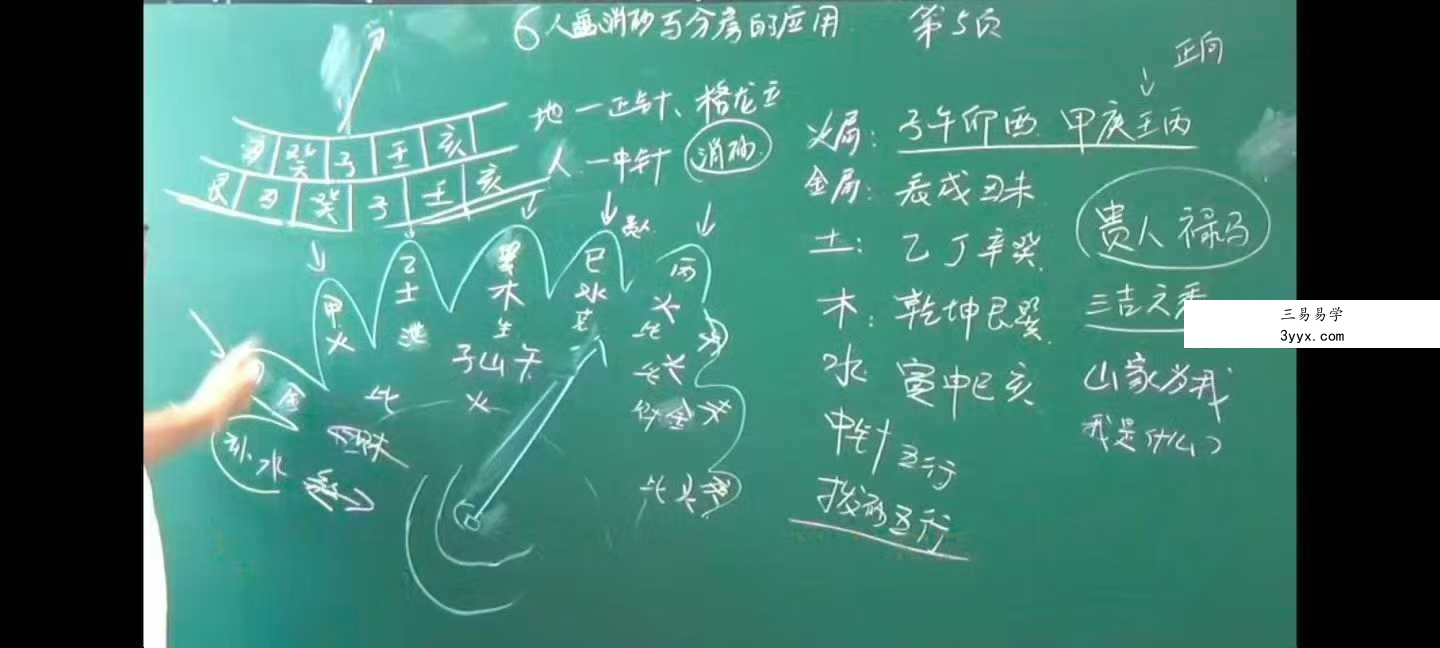 6 人盘消砂与分房的应用 第5页
正向
地一正针、格龙立
人一中针 消砂
丑 癸 子 壬 亥
艮 丑 癸 子 壬 亥
甲 火
乙 土 泄
木 生
巳 水
丙 火 比
子山午
火
金
比
水
财 金
比
火局: 子午卯酉 甲庚壬丙
金局: 辰戌丑未
土: 乙丁辛癸
木: 乾坤艮巽
水: 寅申巳亥
中针五行
拨砂五行
贵人禄马
三吉六秀
山家为我
我是什么?
三易易学
3yyx.com